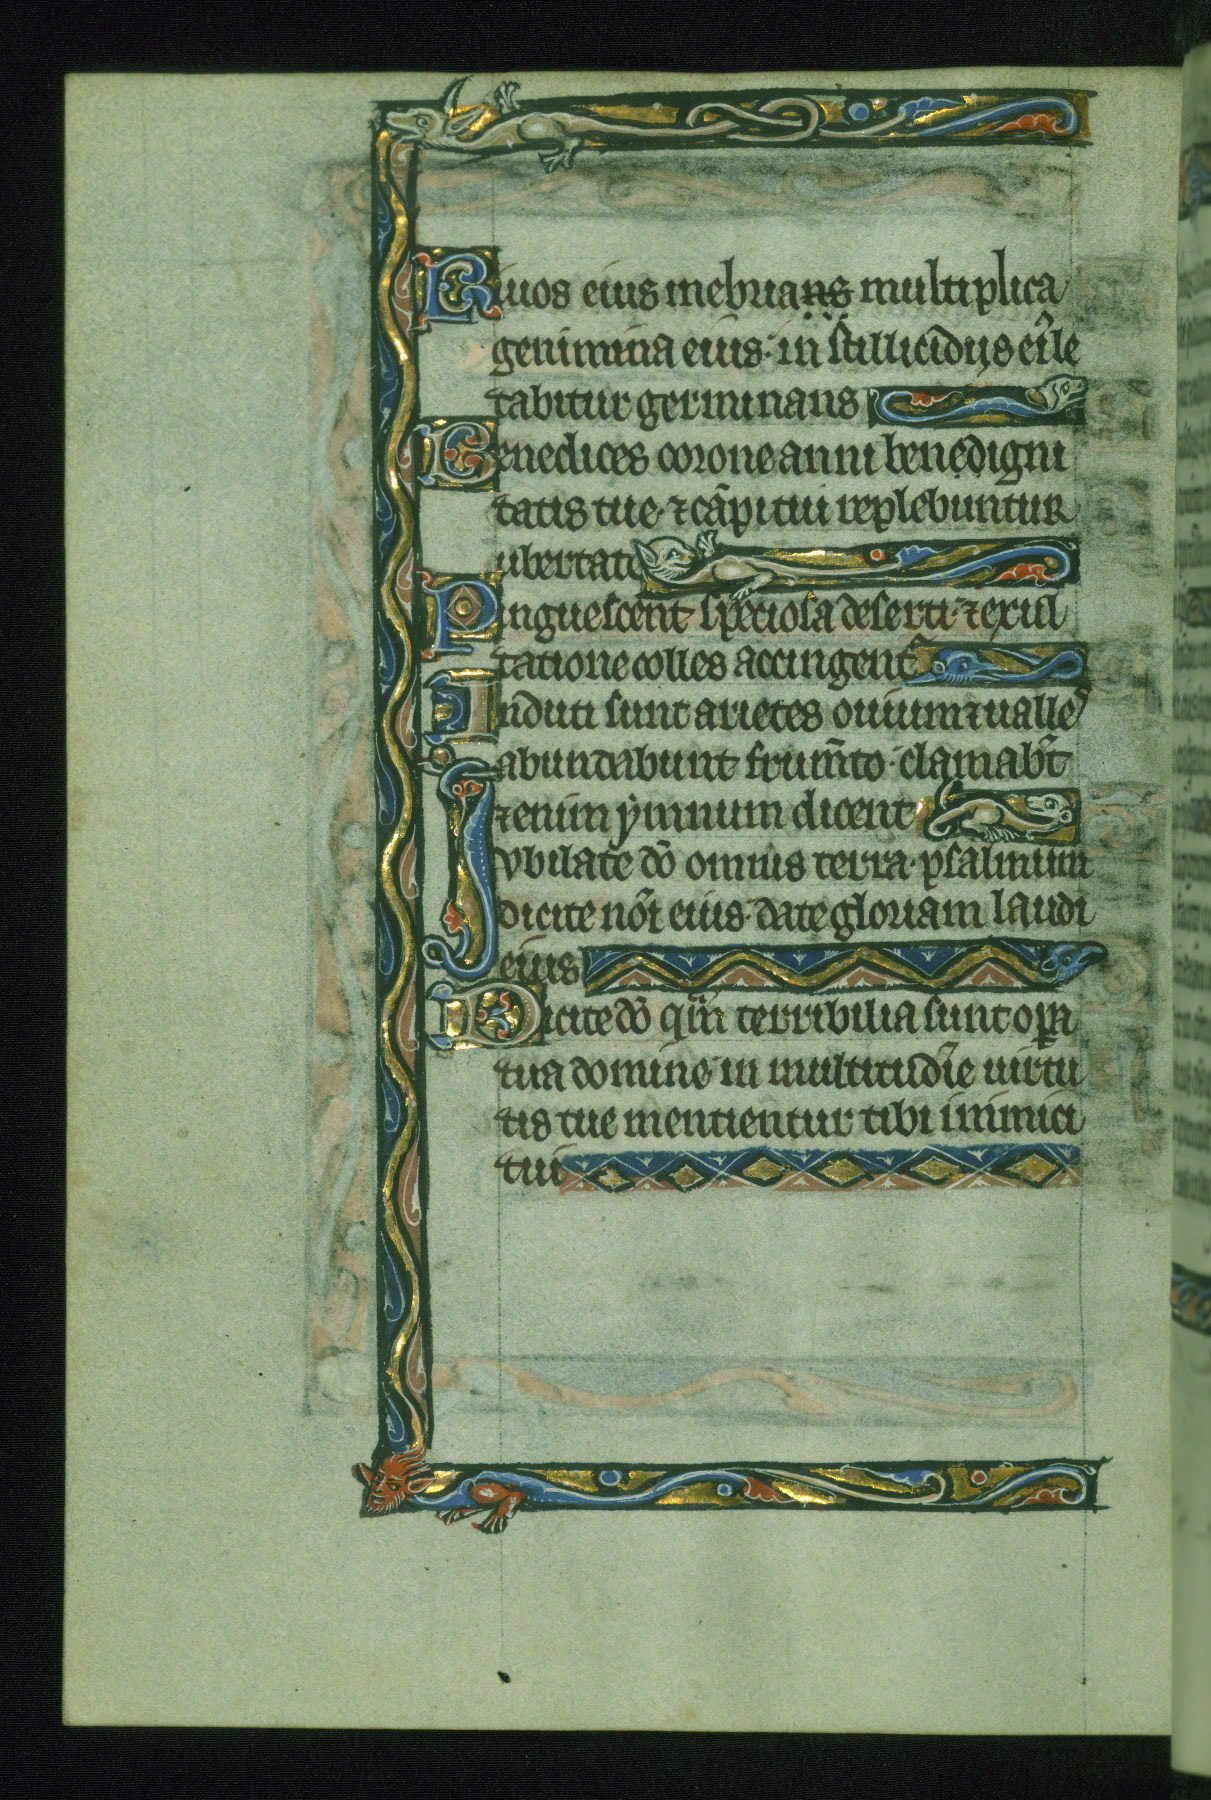 Riuos eius inebrians multiplica
genimina eius· in stillicidiis ei᷑ le
tabitur germinans
Benedices corone anni benedigni
tatis tue· ⁊ cãpi tui replebuntur
ubertate
Pinguescent speciosa deserti· ⁊ exul
tatione colles accingent᷑
Induti sunt arietes ouium ⁊ ualles
abundabunt frum̃to· clamabt̃
⁊enim ẏmnum dicent
Iubilate dõ omnis terra· psalmum
dicite nõi eius· date gloriam laudi
eius
Dicite dõ qm̃ terribilia sunt opa
tua domine· in multitudĩe uirtu
tis tue mentientur tibi inimici
tui